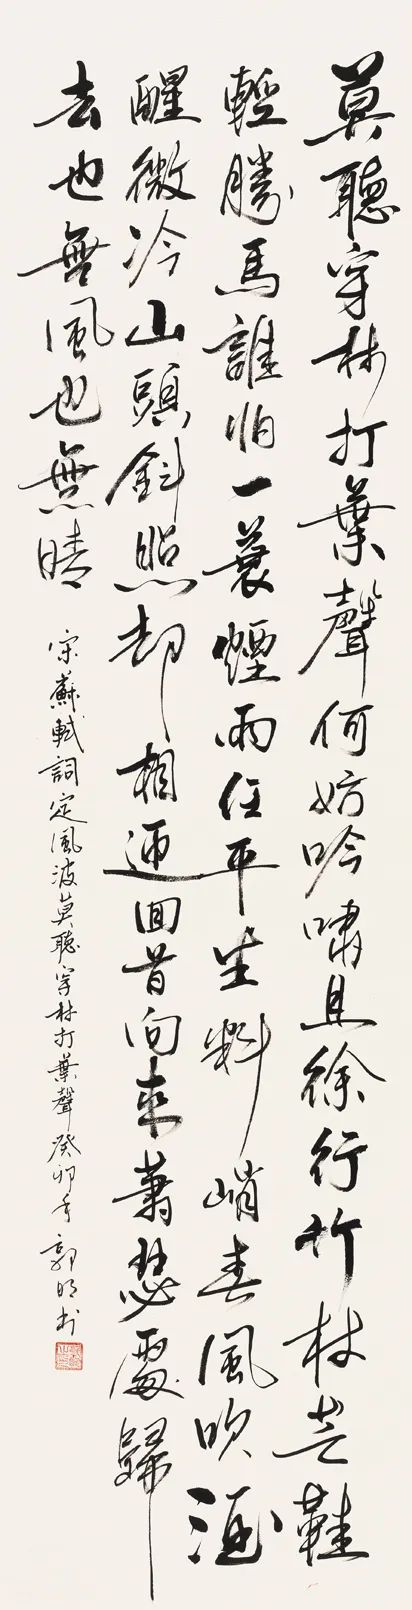 莫聽穿林打葉聲何妨吟嘯且徐行竹杖芒鞋
輕勝馬誰怕一蓑煙雨任平生料峭春風吹酒
醒微冷山頭斜照却相迎回首向來蕭瑟處歸
去也無風也無晴
宋蘇軾詞定風波莫聽穿林打葉聲癸卯年郭明书